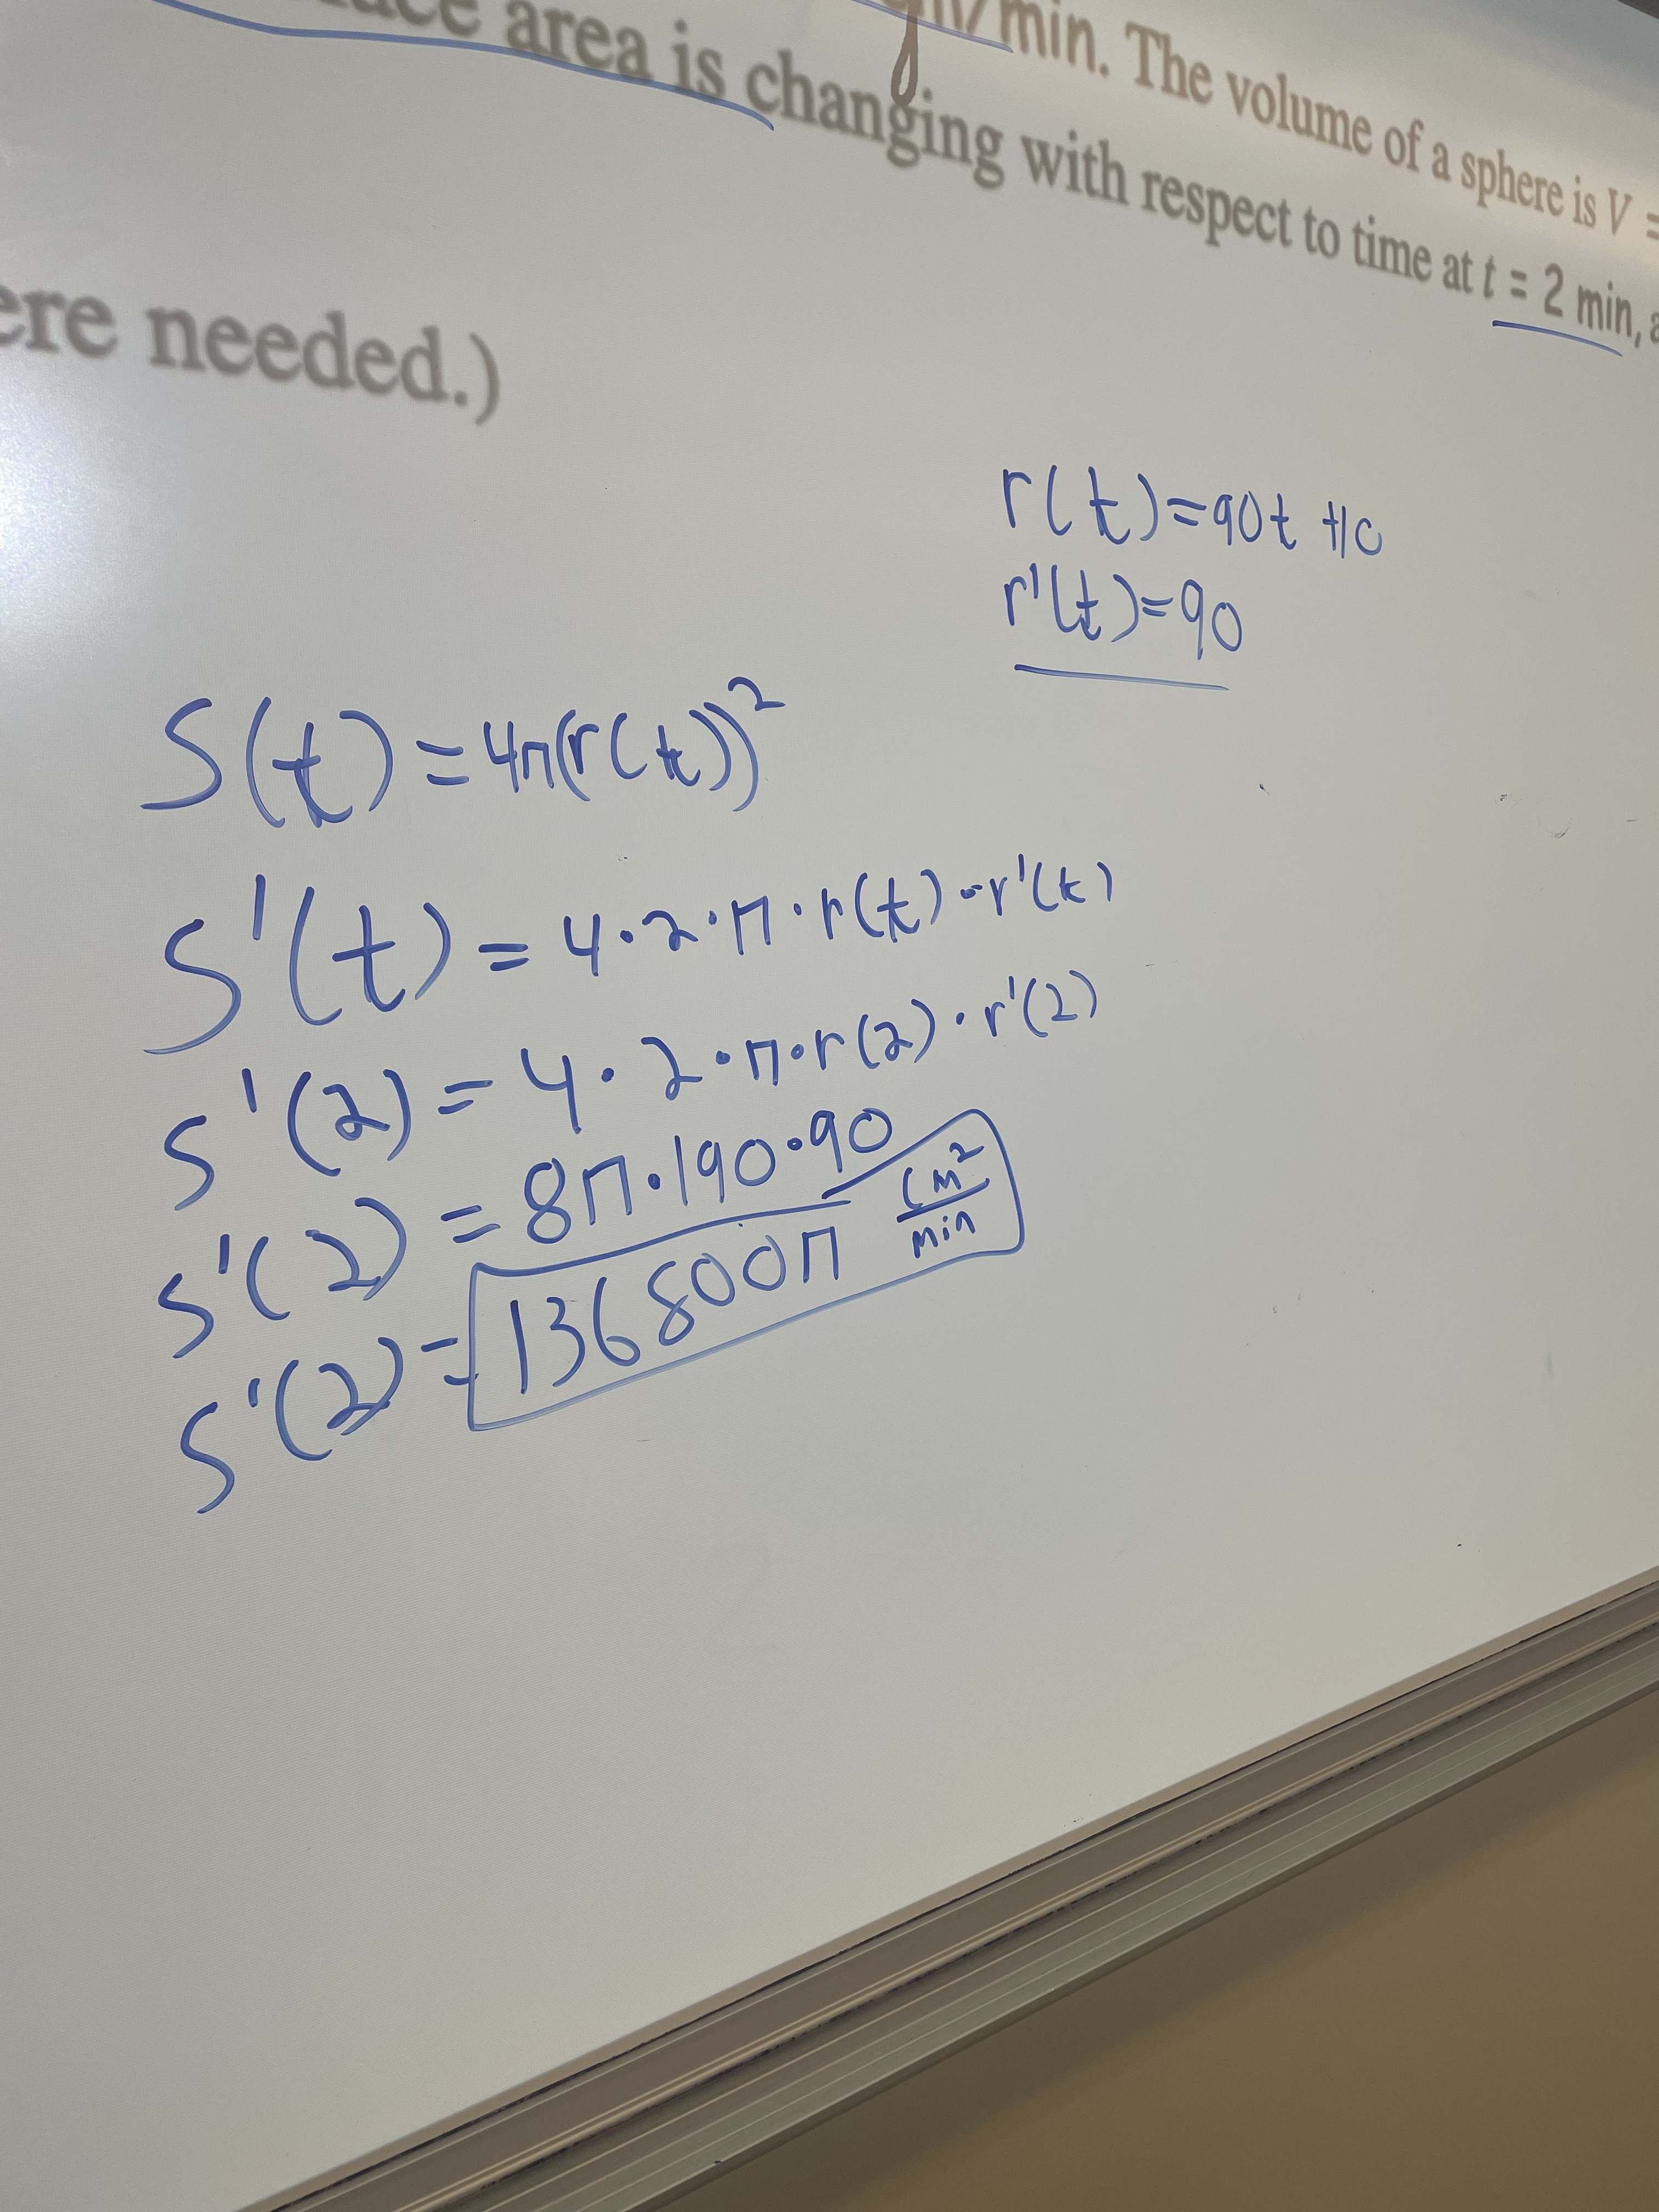 area is changing with respect to time at t = 2 min,
min. The volume of a sphere is V =
needed.)
r(t)=90t +10
r'(t)=90
S(t)=4π(r(t))²
S'(t)=4·2·π·r(t)·r'(t)
S'(2)=4·2·π·r(2)·r'(2)
S'(2)=8π·190·90
S'(2)=136800π cm²/min